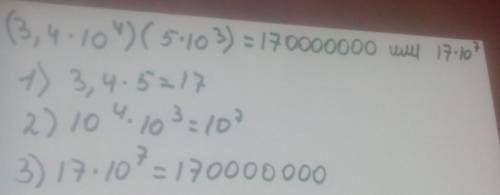 (3,4·10⁴)(5·10³)=170000000 или 17·10⁷
1) 3,4·5=17
2) 10⁴·10³=10⁷
3) 17·10⁷=170000000